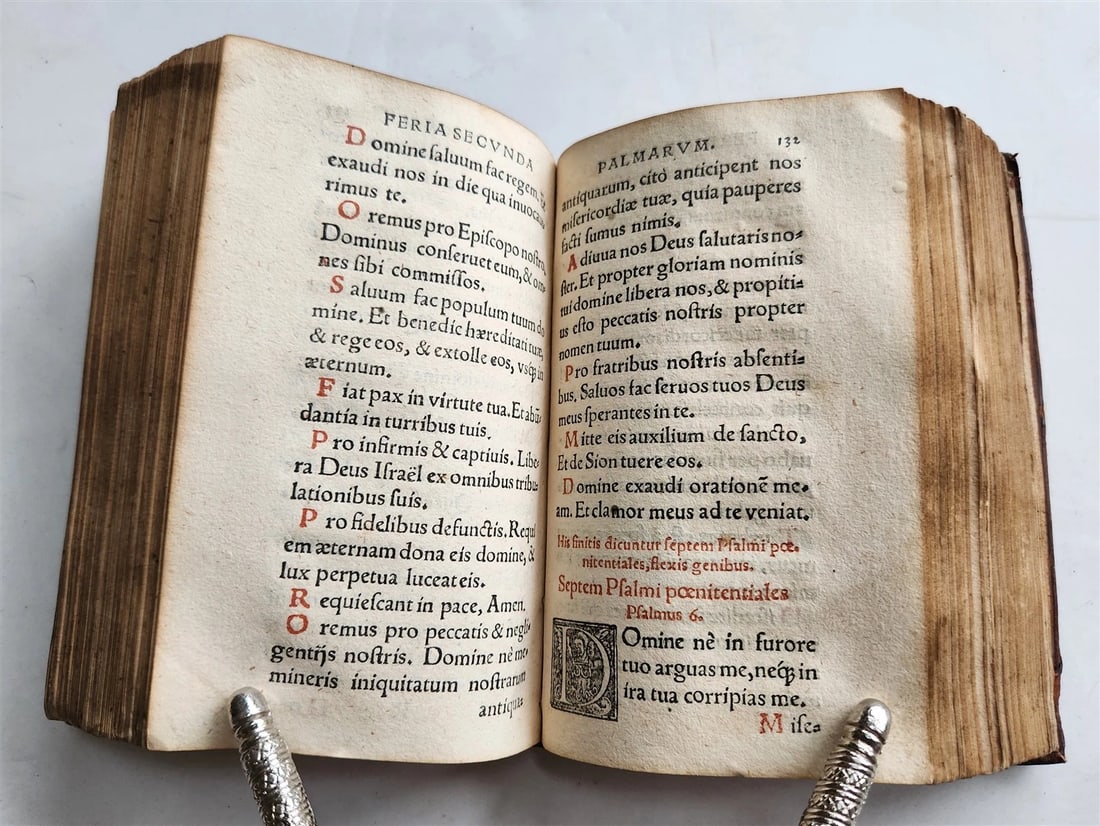 FERIA SECVNDA
Domine ſaluum fac regem. Et
exaudi nos in die qua inuoca
rimus te.
Oremus pro Epiſcopo noſtro,
Dominus conſeruet eum, & om
nes ſibi commiſſos.
Saluum fac populum tuum do
mine. Et benedic hæreditati tuæ,
& rege eos, & extolle eos, vſq; in
æternum.
Fiat pax in virtute tua. Et abū-
dantia in turribus tuis.
Pro infirmis & captiuis. Libe-
ra Deus Iſraël ex omnibus tribu-
lationibus ſuis.
Pro fidelibus defunctis. Requi
em æternam dona eis domine, &
lux perpetua luceat eis.
Requieſcant in pace, Amen.
Oremus pro peccatis & negli-
gentijs noſtris. Domine nè me-
mineris iniquitatum noſtrarum
antiqua-
PALMARVM. 132
antiquarum, citò anticipent nos
miſericordiæ tuæ, quia pauperes
facti ſumus nimis.
Adiuua nos Deus ſalutaris no-
ſter. Et propter gloriam nominis
tui domine libera nos, & propiti-
us eſto peccatis noſtris propter
nomen tuum.
Pro fratribus noſtris abſenti-
bus. Saluos fac ſeruos tuos Deus
meus ſperantes in te.
Mitte eis auxilium de ſancto,
Et de Sion tuere eos.
Domine exaudi orationē me-
am. Et clamor meus ad te veniat.
His finitis dicuntur ſeptem Pſalmi pœ-
nitentiales, flexis genibus.
Septem Pſalmi pœnitentiales
Pſalmus 6.
DOmine nè in furore
tuo arguas me, neq; in
ira tua corripias me.
Miſe-